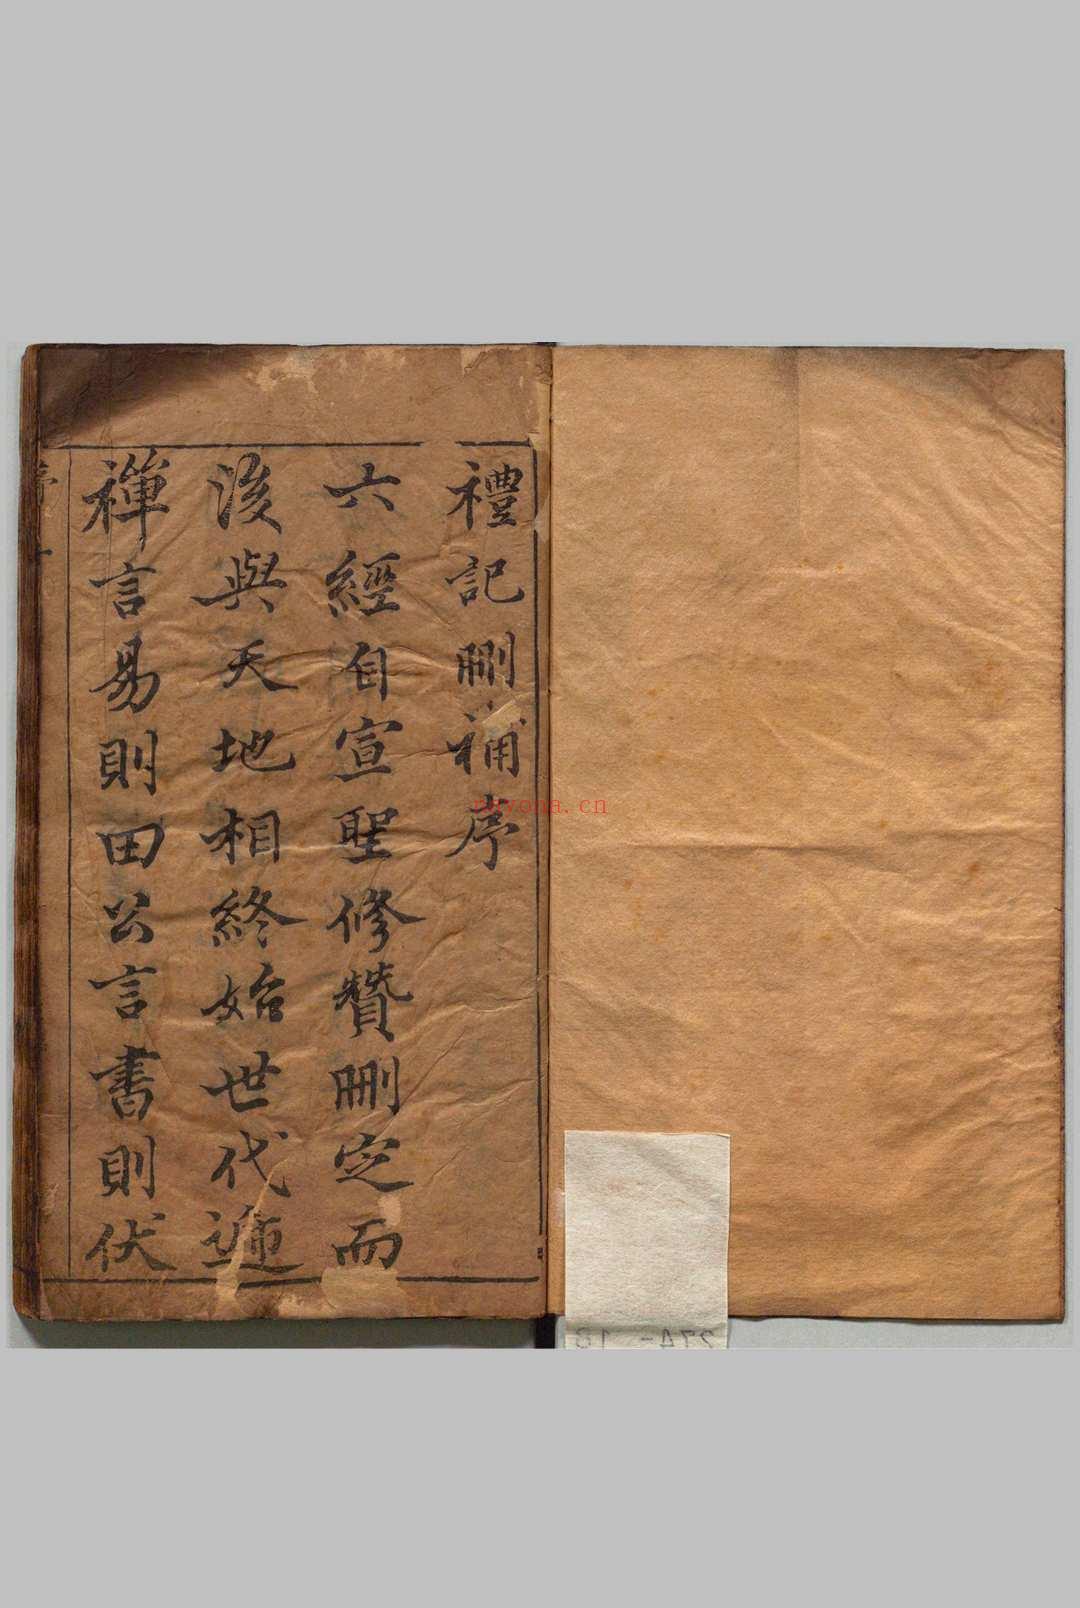 禮記刪補序
六經自宣聖修贊刪定而
後與天地相終始世代遞
禪言易則田公言書則伏
nayona.cn
274-18